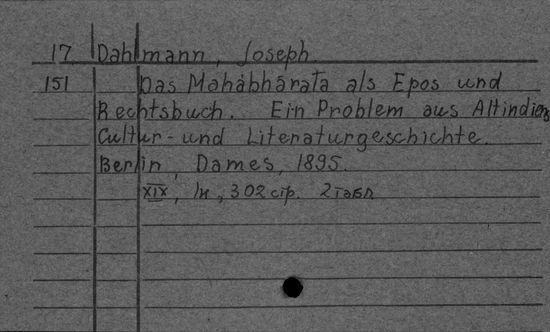 17 Dahlmann, Joseph.
151 Das Mahâbhârata als Epos und
Rechtsbuch. Ein Problem aus Altindiens
Cultur- und Literaturgeschichte.
Berlin, Dames, 1895.
XIX, 302 стр. 2 табл.